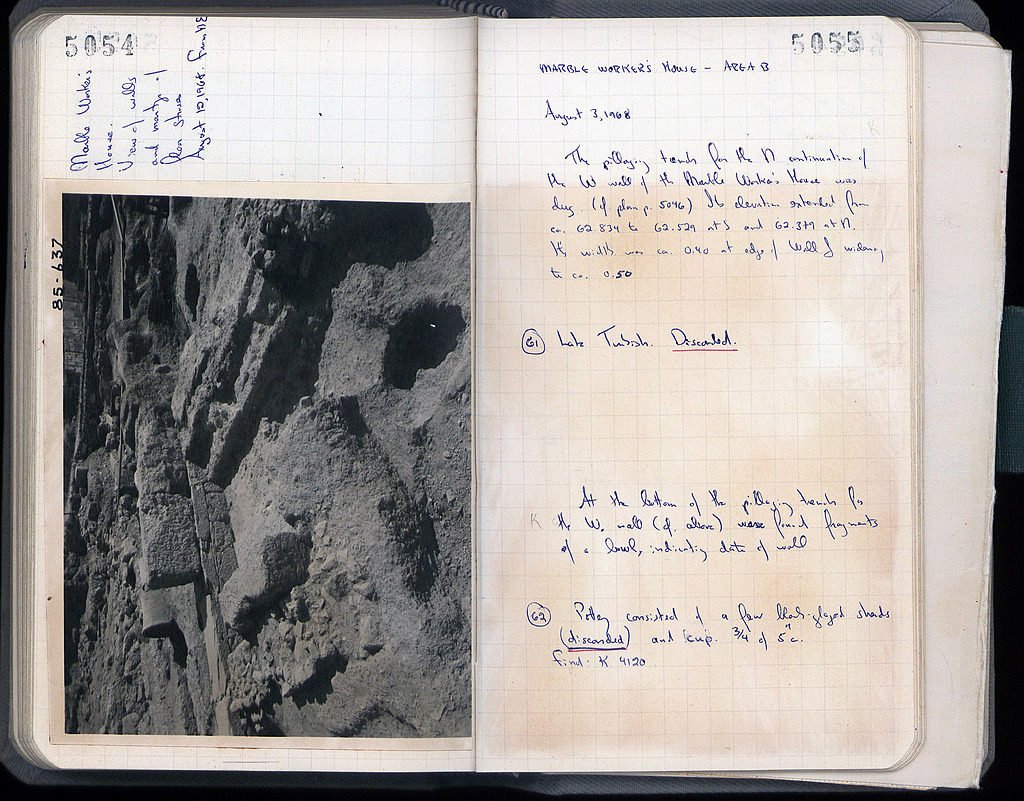 5054
Marble Worker's
House.
View of walls
and mortar of
Poros Stones
August 12, 1968. From
85-637
5055
MARBLE WORKER'S HOUSE - AREA B
August 3, 1968
The pillaging trench for the N continuation of
the W wall of the Marble Worker's House was
dug. (cf plan p. 5046) Its elevation extended from
ca. 62.834 to 62.529 at S and 62.379 at N.
Its width was ca. 0.40 at edge of Wall J widening
to ca. 0.50
61 Late Turkish. Discarded.
K
At the bottom of the pillaging trench for
K the W. wall (cf. above) were found fragments
of a bowl, indicating date of wall
62 Pottery consisted of a few black-glazed sherds
(discarded) and 1 cup. 3/4 of 5th c.
find: K 4120